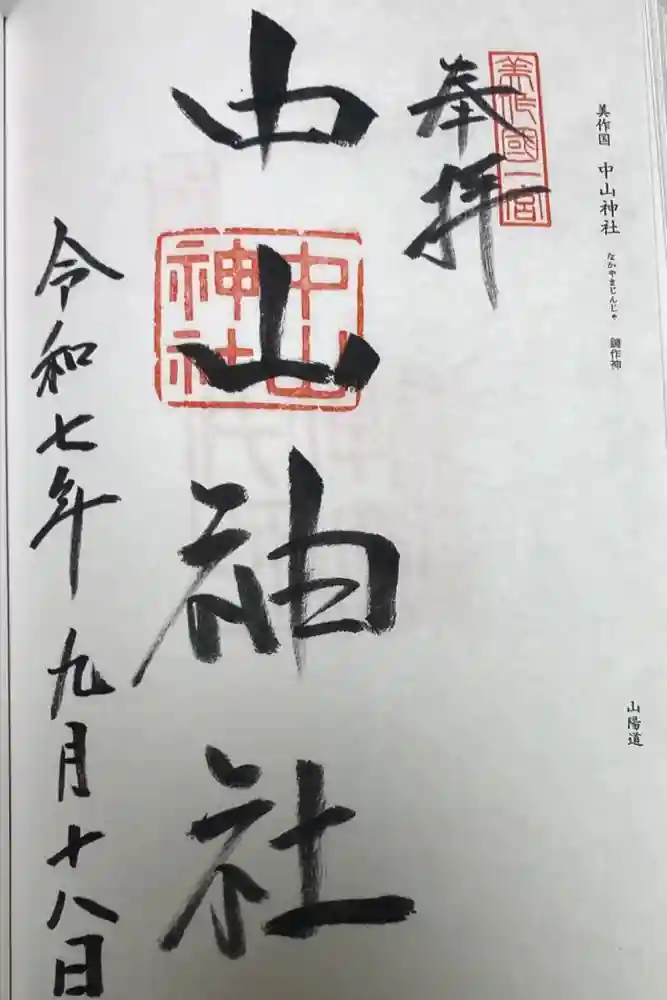 美作国 中山神社 なかやまじんじゃ 鏡作神
山陽道
美作國一宮
奉拝
中山神社
中山神社
令和七年九月十八日